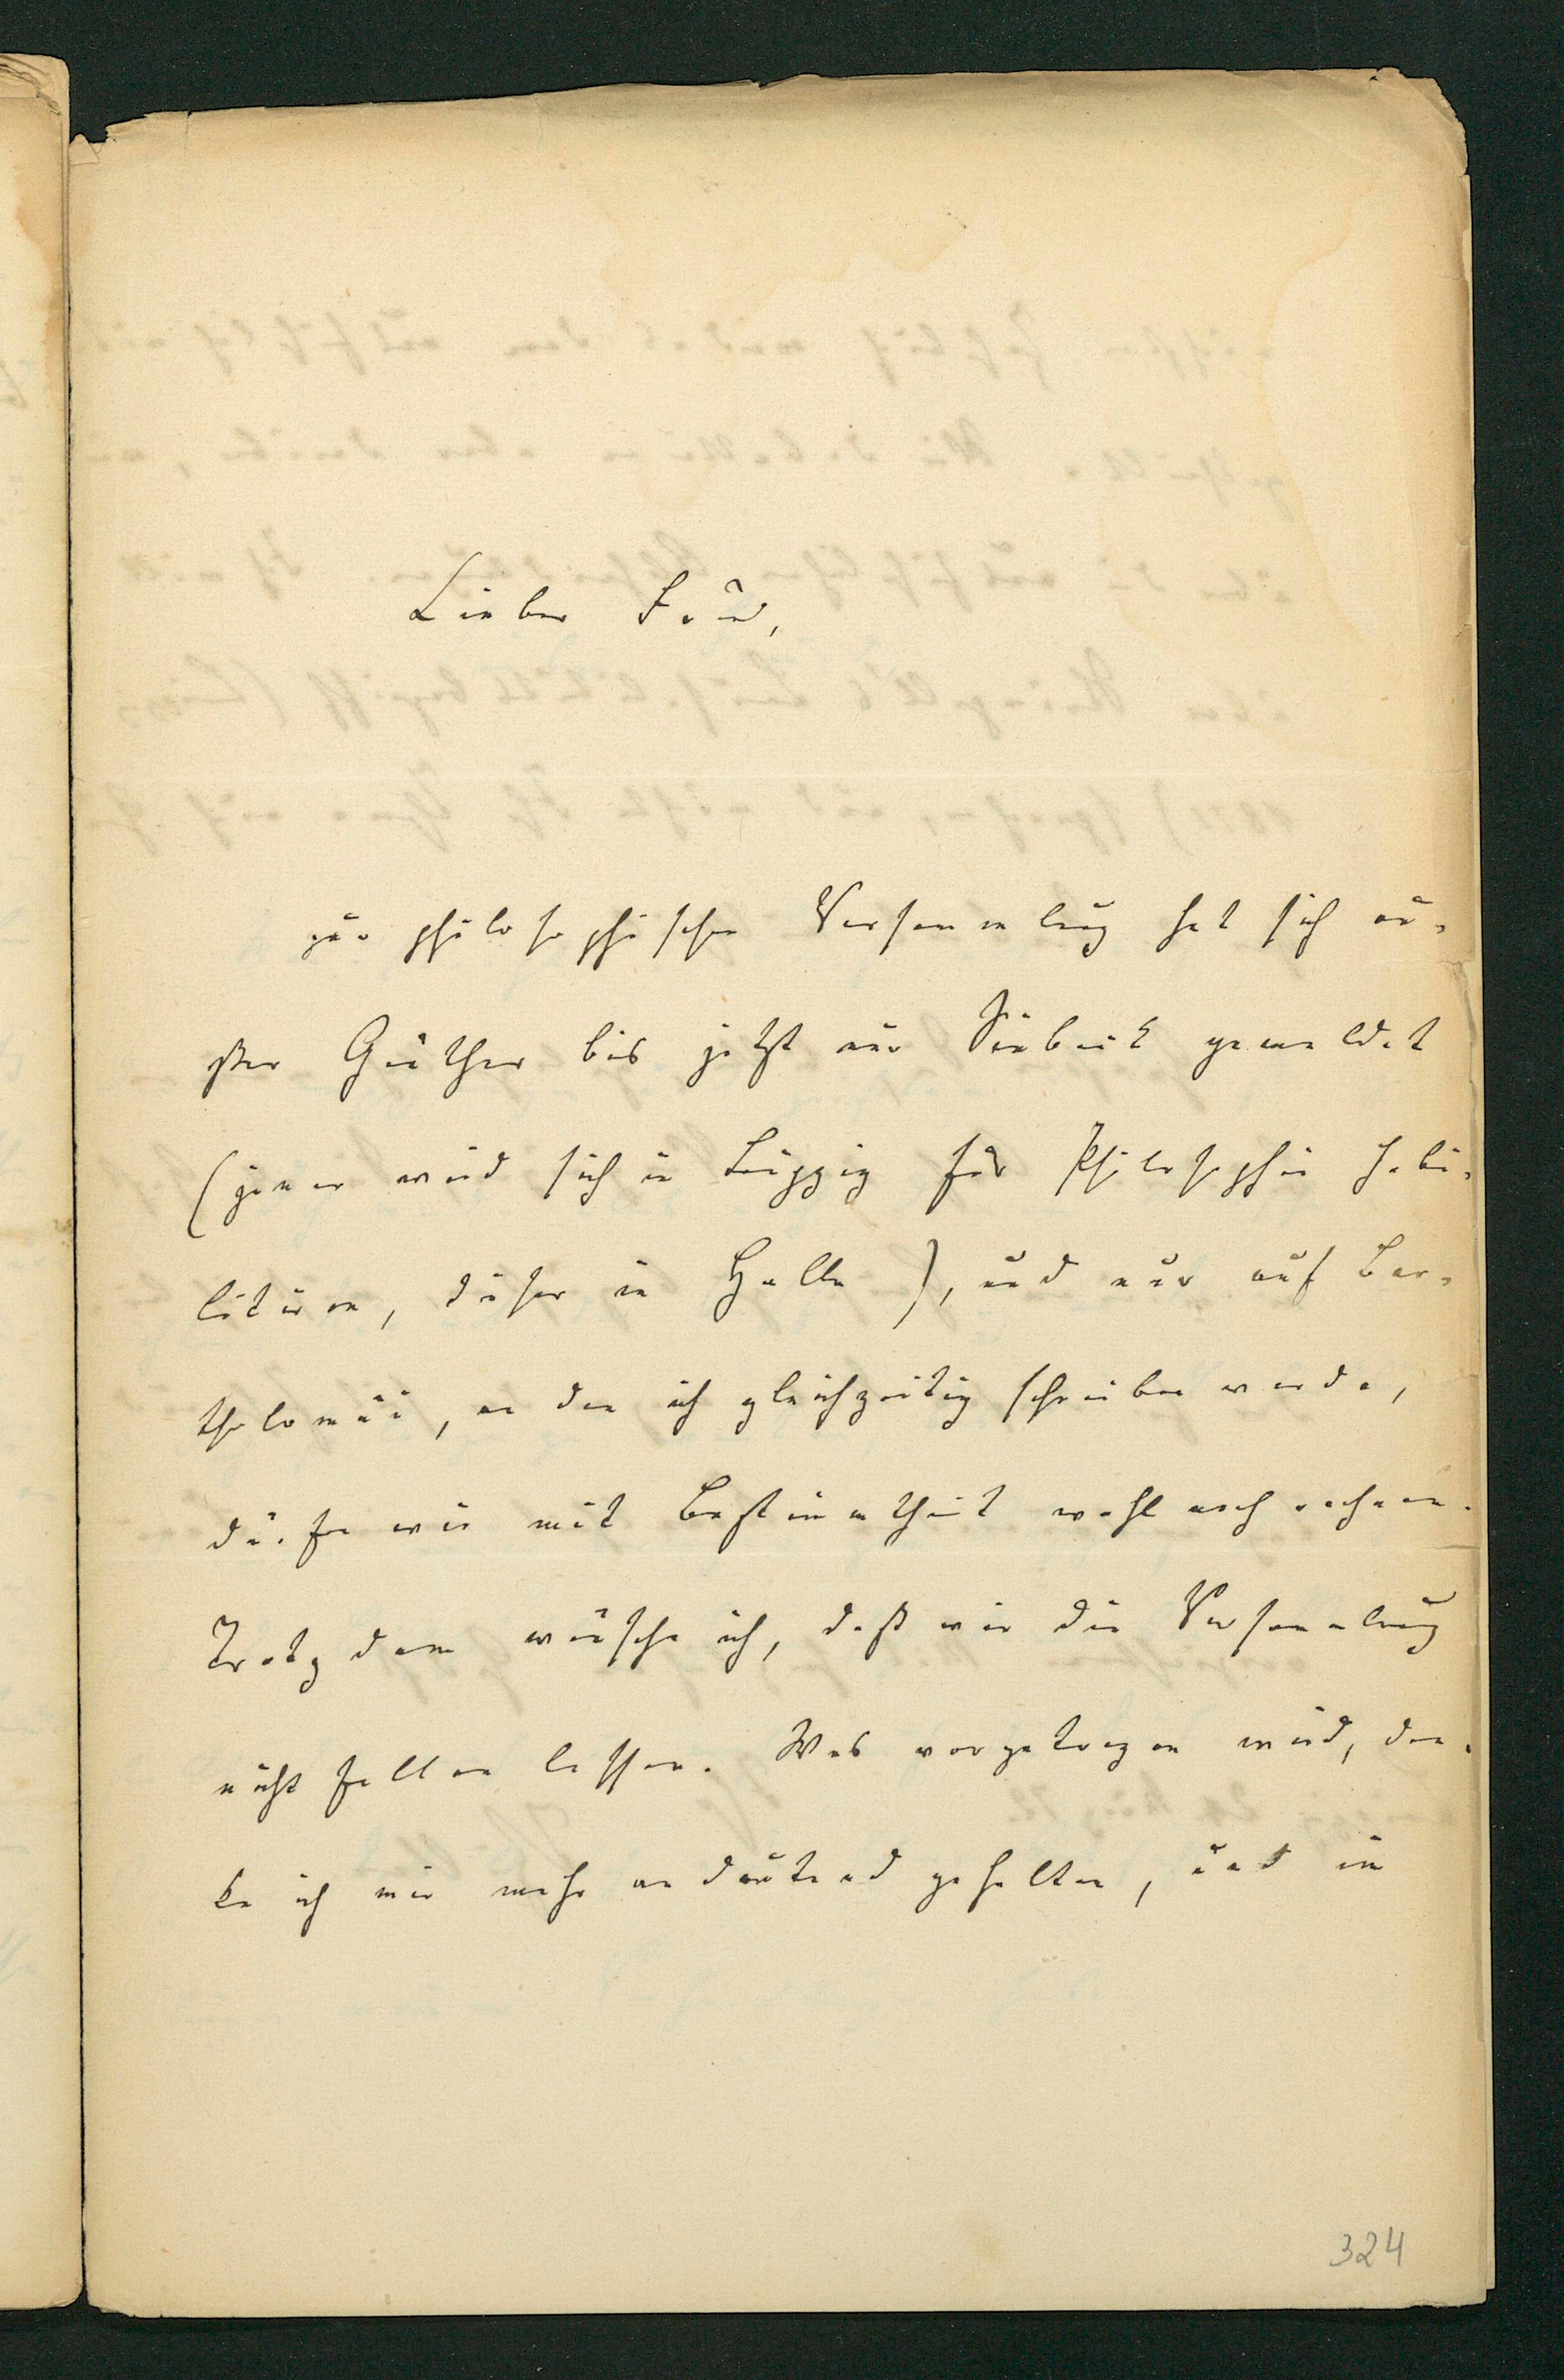 Lieber Freund,
zur philosophischen Versammlung hat sich au-
ßer Günther bis jetzt nur Siebeck gemeldet
(jener wird sich in Leipzig für Philosophie habi-
litiren, dieser in Halle), und nur auf Bar-
tholomäi, an den ich gleichzeitig schreiben werde,
dürfen wir mit Bestimmtheit wohl noch rechnen.
Trotzdem wünsche ich, daß wir die Versammlung
nicht fallen lassen. Was vorgetragen wird, den-
ke ich mir mehr andeutend gehalten, und im
324